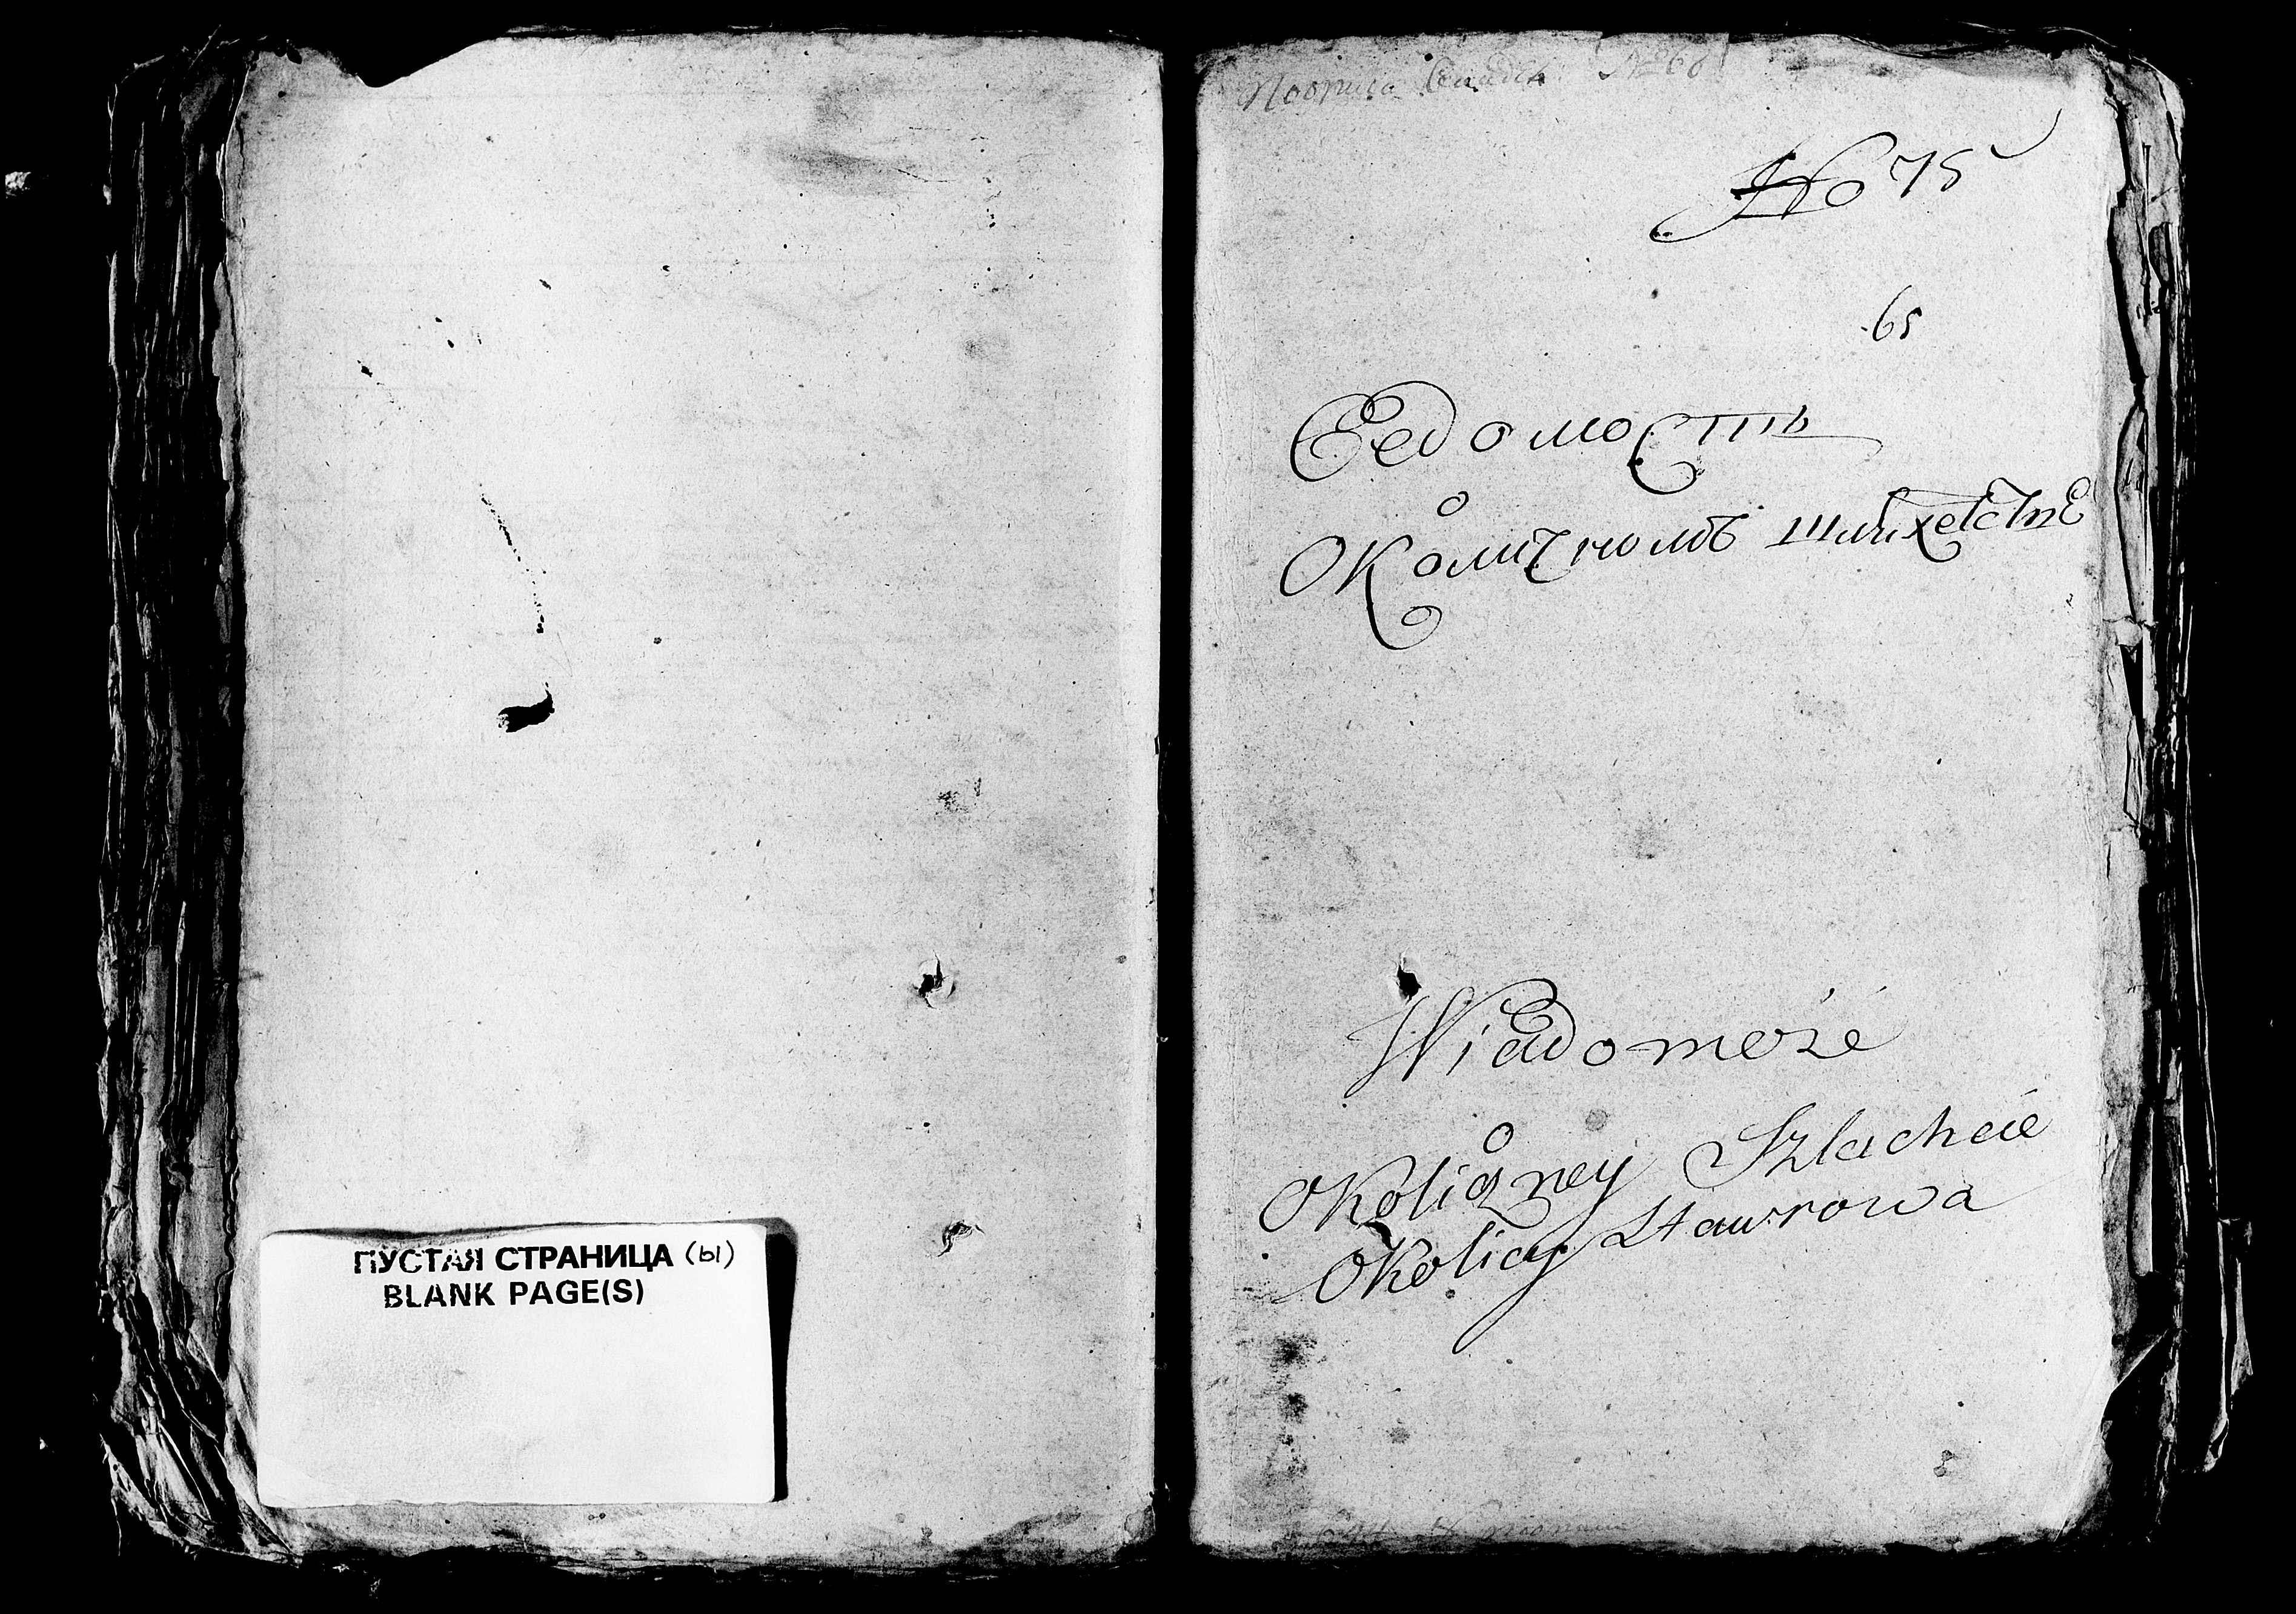 ПУСТАЯ СТРАНИЦА (ы)
BLANK PAGE(S)
№ 60
No 75
65
Ведомость
о
Околичномъ шляхетстве
Wiadomość
o
Okoliczney Szlachcie
Okolicy Stawrowa